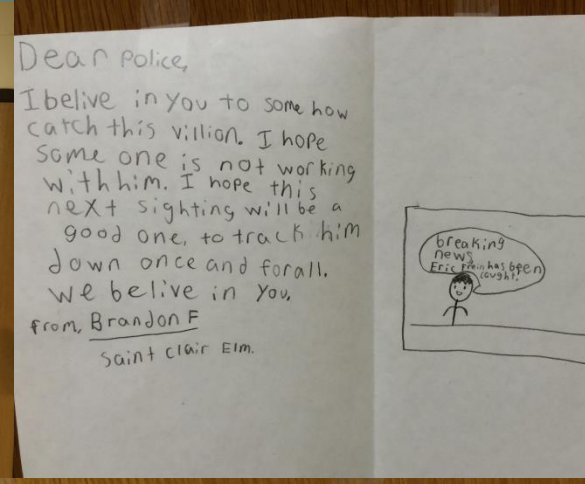 Dear police,
I belive in you to some how
catch this villion. I hope
some one is not working
with him. I hope this
next sighting will be a
good one, to track him
down once and forall.
We belive in you.
from, Brandon F
Saint Clair Elm.
breaking
news
Eric Frein has been
caught.